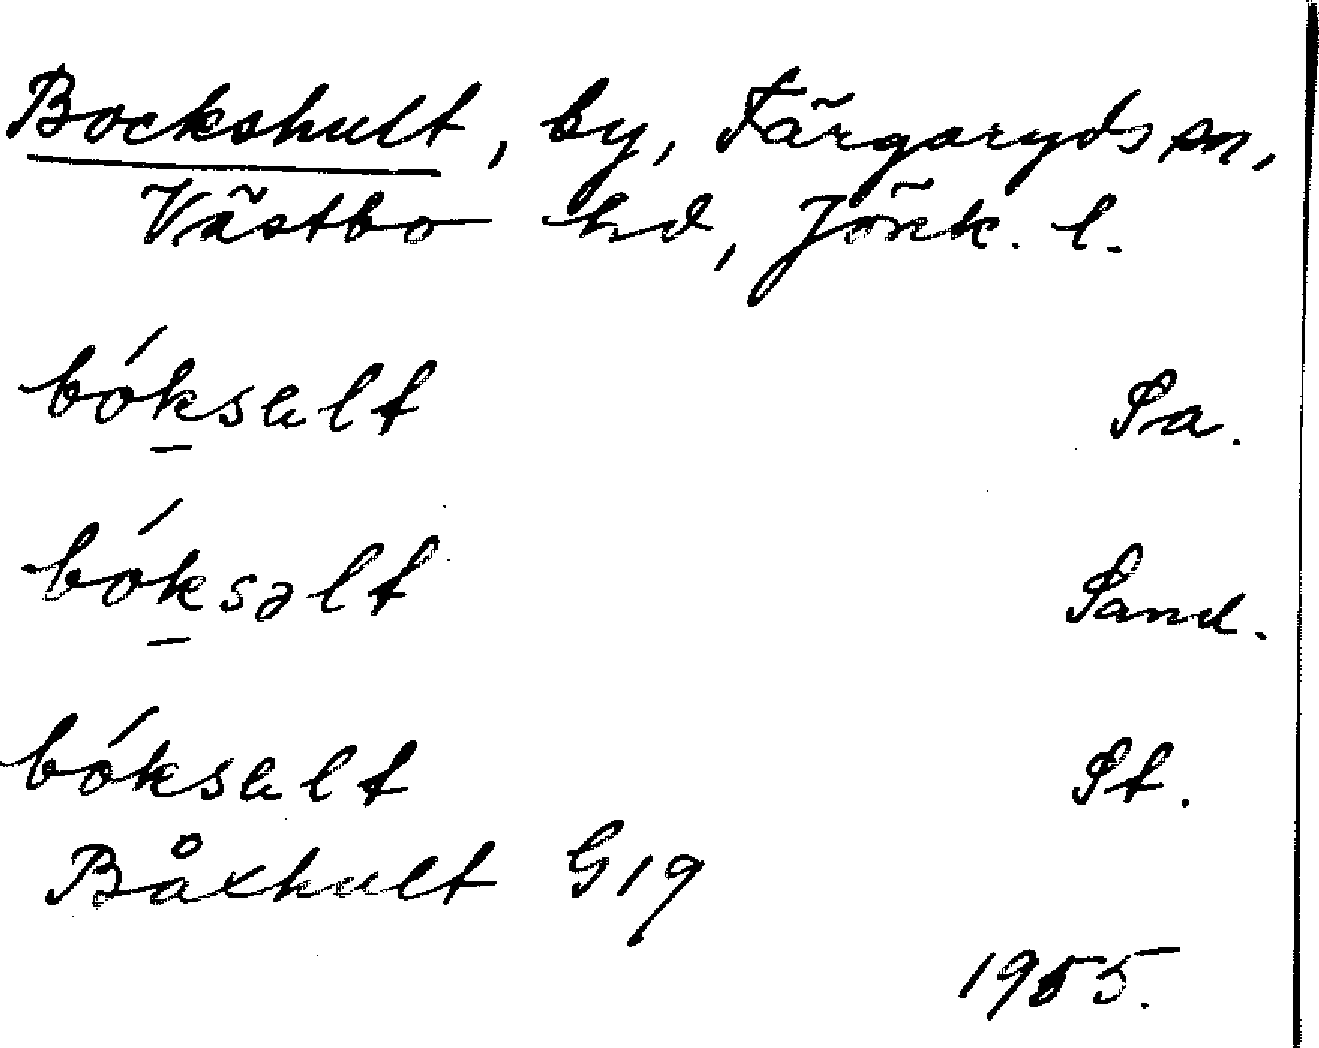 Bockshult, by, Färgaryds sn,
Västbo hd, Jönk. l.
bóksɐlt Sa.
bóksəlt Sand.
bóksɐlt St.
Båxhult G19
1955.